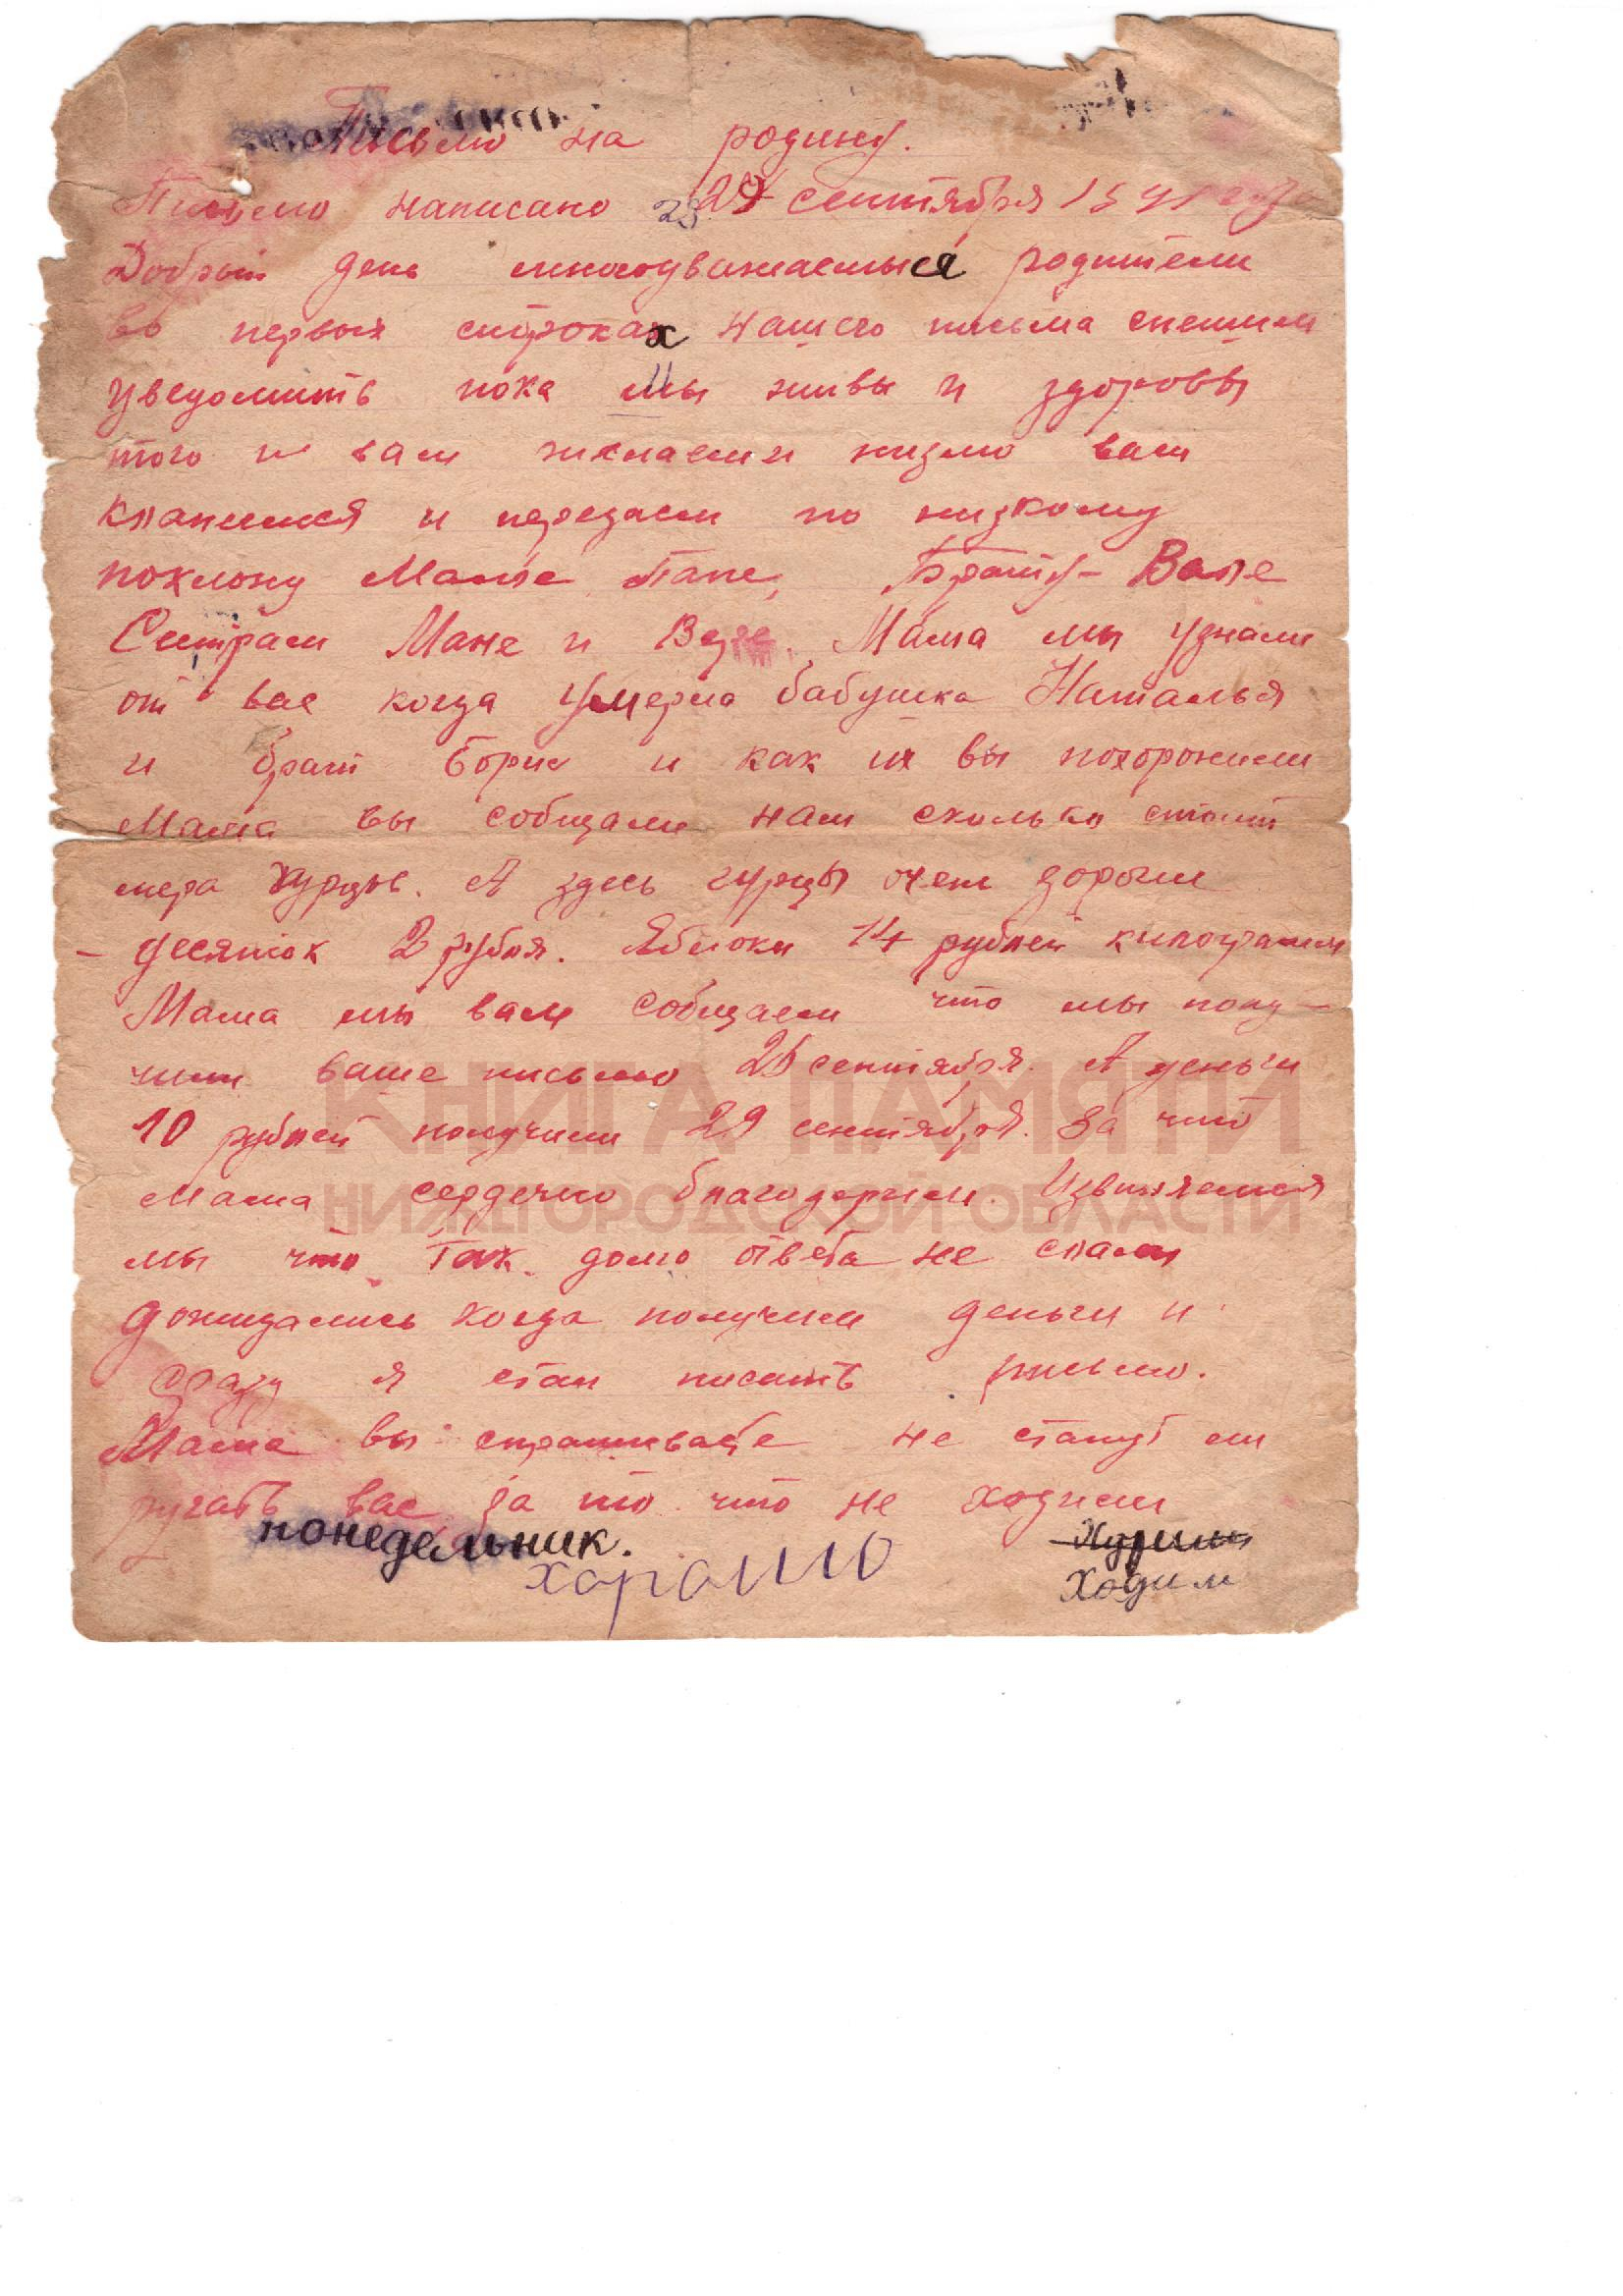 Письмо на родину.
Письмо написано 28 29 сентября 1941 года
Добрый день многоуважаемыея родители
во первых строках нашего письма спешим
уведомить пока мы живы и здоровы
того и вам желаем и низко вам
кланимся и передаем по низкому
поклону Маме Папе, Брату Вале
Сестрам Мане и Мама мы узнали
от вас когда умерла бабушка Наталья
и брат Борис и как их вы похоронили
Мама вы собщали нам сколько стоит
мера А здесь гурцы очен дороги
– десяток 2 рубля. Яблоки 14 рублей килограмм
Мама мы вам собщаем что мы полу–
чили ваше письмо 26 сентября. А деньги
10 рублей получили 29 сентября. За что
мама сердечно благодарим. Извиняемся
мы что так долго ответа не слали
дожидались когда получим деньги и
сразу я стал писать письмо.
Мама вы спрашивате не станут ли
ругать вас за то что не ходили
понедельник.
харашо
Ходили
КНИГА ПАМЯТИ
НИЖЕГОРОДСКОЙ ОБЛАСТИ